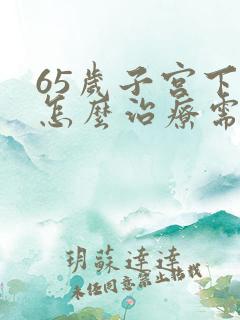 65歲子宮下
怎麼治療需
玥蘇達達
未經同意禁止搭載